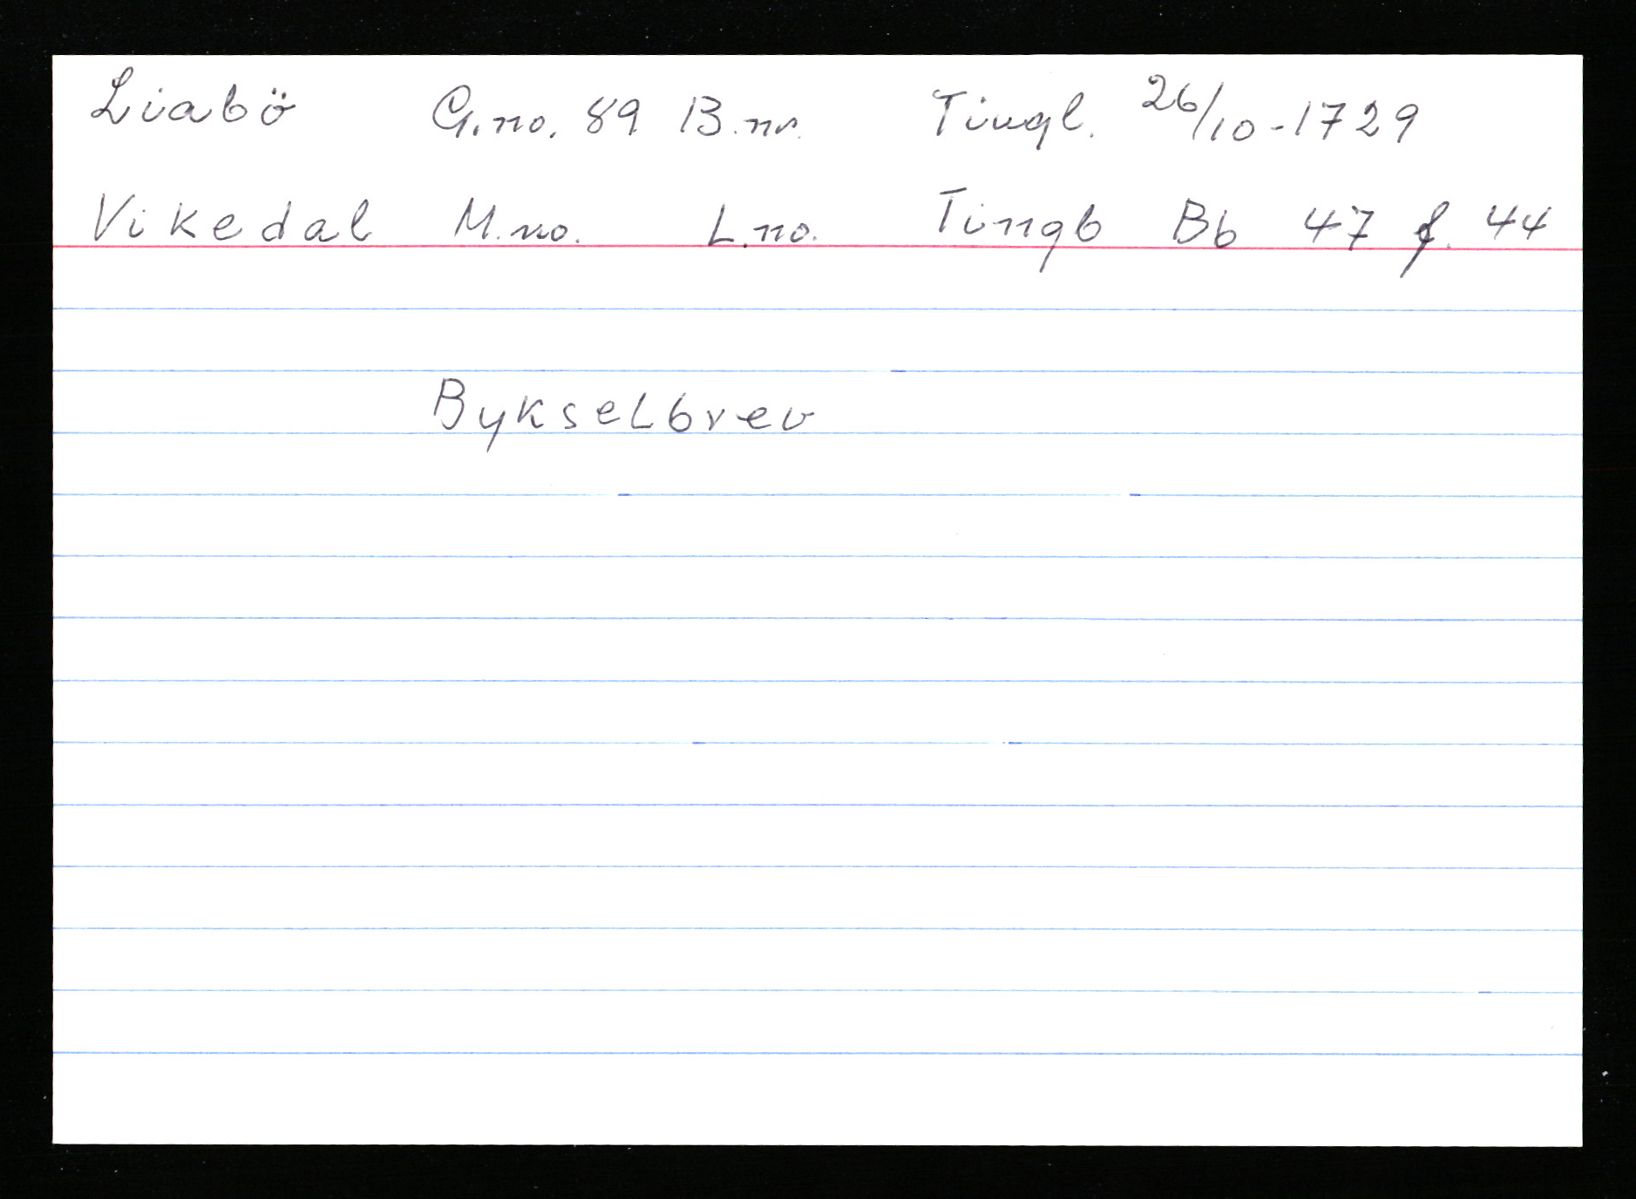 Liabö G.no. 89 B.nr. Tingl. 26/10-1729
Vikedal M.no. L.no. Tingb Bb 47 f. 44
Bykselbrev